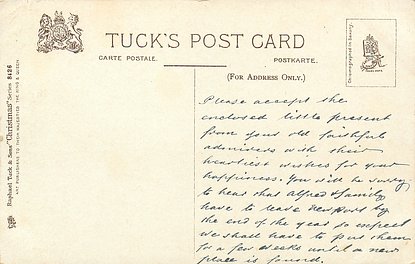 TUCK'S POST CARD
CARTE POSTALE.
POSTKARTE.
(FOR ADDRESS ONLY.)
Raphael Tuck & Sons' "Christmas" Series 8426
ART PUBLISHERS TO THEIR MAJESTIES THE KING & QUEEN.
Chromographed in Saxony.
Please accept the
enclosed little present
from your old faithful
admirers with their
heartiest wishes for your
happiness. You will be sorry
to hear that Alfred & family
have to leave Newport by
the end of the year so expect
we shall have to put them
for a few weeks until a new
place is found.